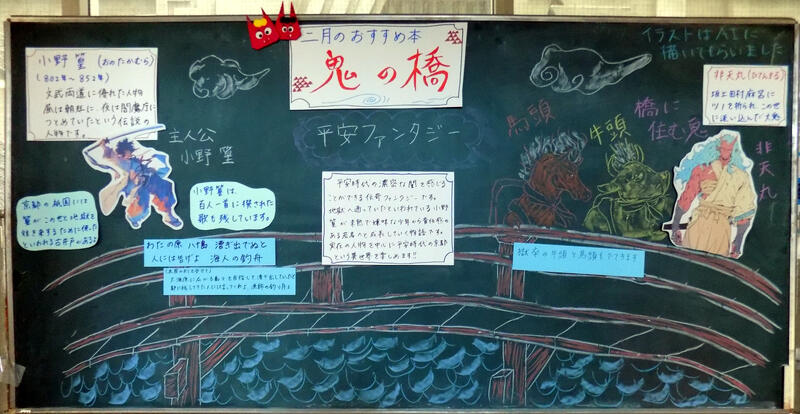 二月のおすすめ本
鬼の橋
イラストはAIに
描いてもらいました
小野篁(おのたかむら)
(802年〜852年)
文武両道に優れた人物
昼は朝廷に、夜は閻魔庁に
つとめていたという伝説の
人物です。
主人公
小野篁
平安ファンタジー
馬頭
牛頭
橋に
住む鬼
非天丸
非天丸(ひてんまる)
坂上田村麻呂に
ツノを折られ、この世
に迷い込んだ大鬼
京都の祇園には
篁がこの世と地獄を
行き来するために使った
といわれる古井戸がある
小野篁は、
百人一首に撰された
歌も残しています。
平安時代の濃密な闇を感じる
ことができる伝奇ファンタジーです。
地獄へ通っていたといわれている小野
篁が未熟で嫌味な少年から責任感の
ある若者へと成長していく物語です。
実在の人物を中心に平安時代の京都
という異世界を楽しめます!!
わたの原 八十島 漕ぎ出でぬと
人には告げよ 海人の釣舟
獄卒の牛頭と馬頭もでてきます